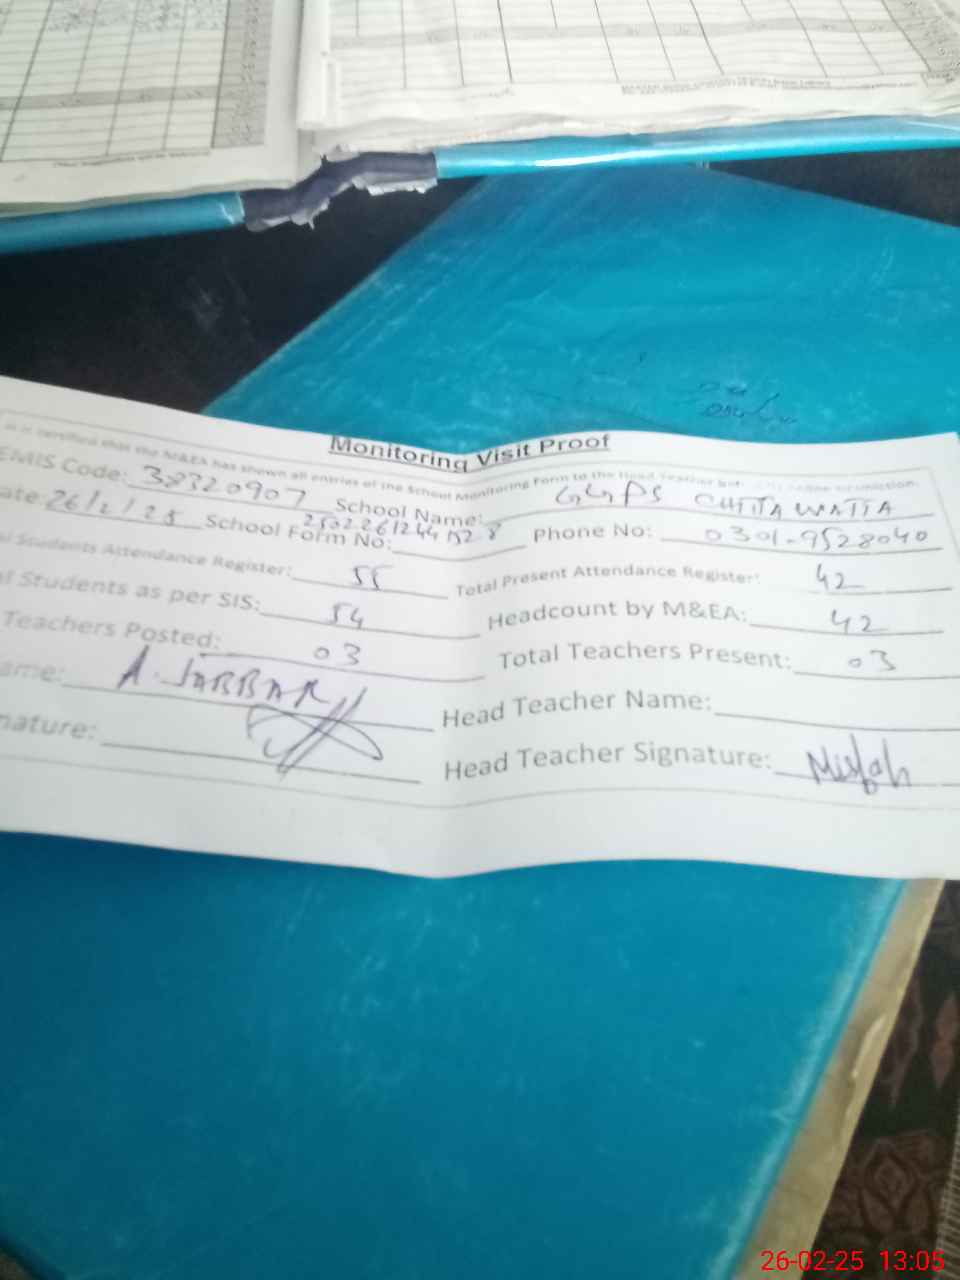 Monitoring Visit Proof
is certified that the M&EA has shown all entries of the School Monitoring Form to the Head Teacher
EMIS Code: 38320907 School Name: GGPS CHITTA WATTA
ate: 26/2/25 School Form No: Phone No: 0301-9528040
al Students Attendance Register: 55 Total Present Attendance Register: 42
al Students as per SIS: 54 Headcount by M&EA: 42
Teachers Posted: 03 Total Teachers Present: 03
ame: A. JABBAR Head Teacher Name:
nature: Head Teacher Signature: Misbah
26-02-25 13:05